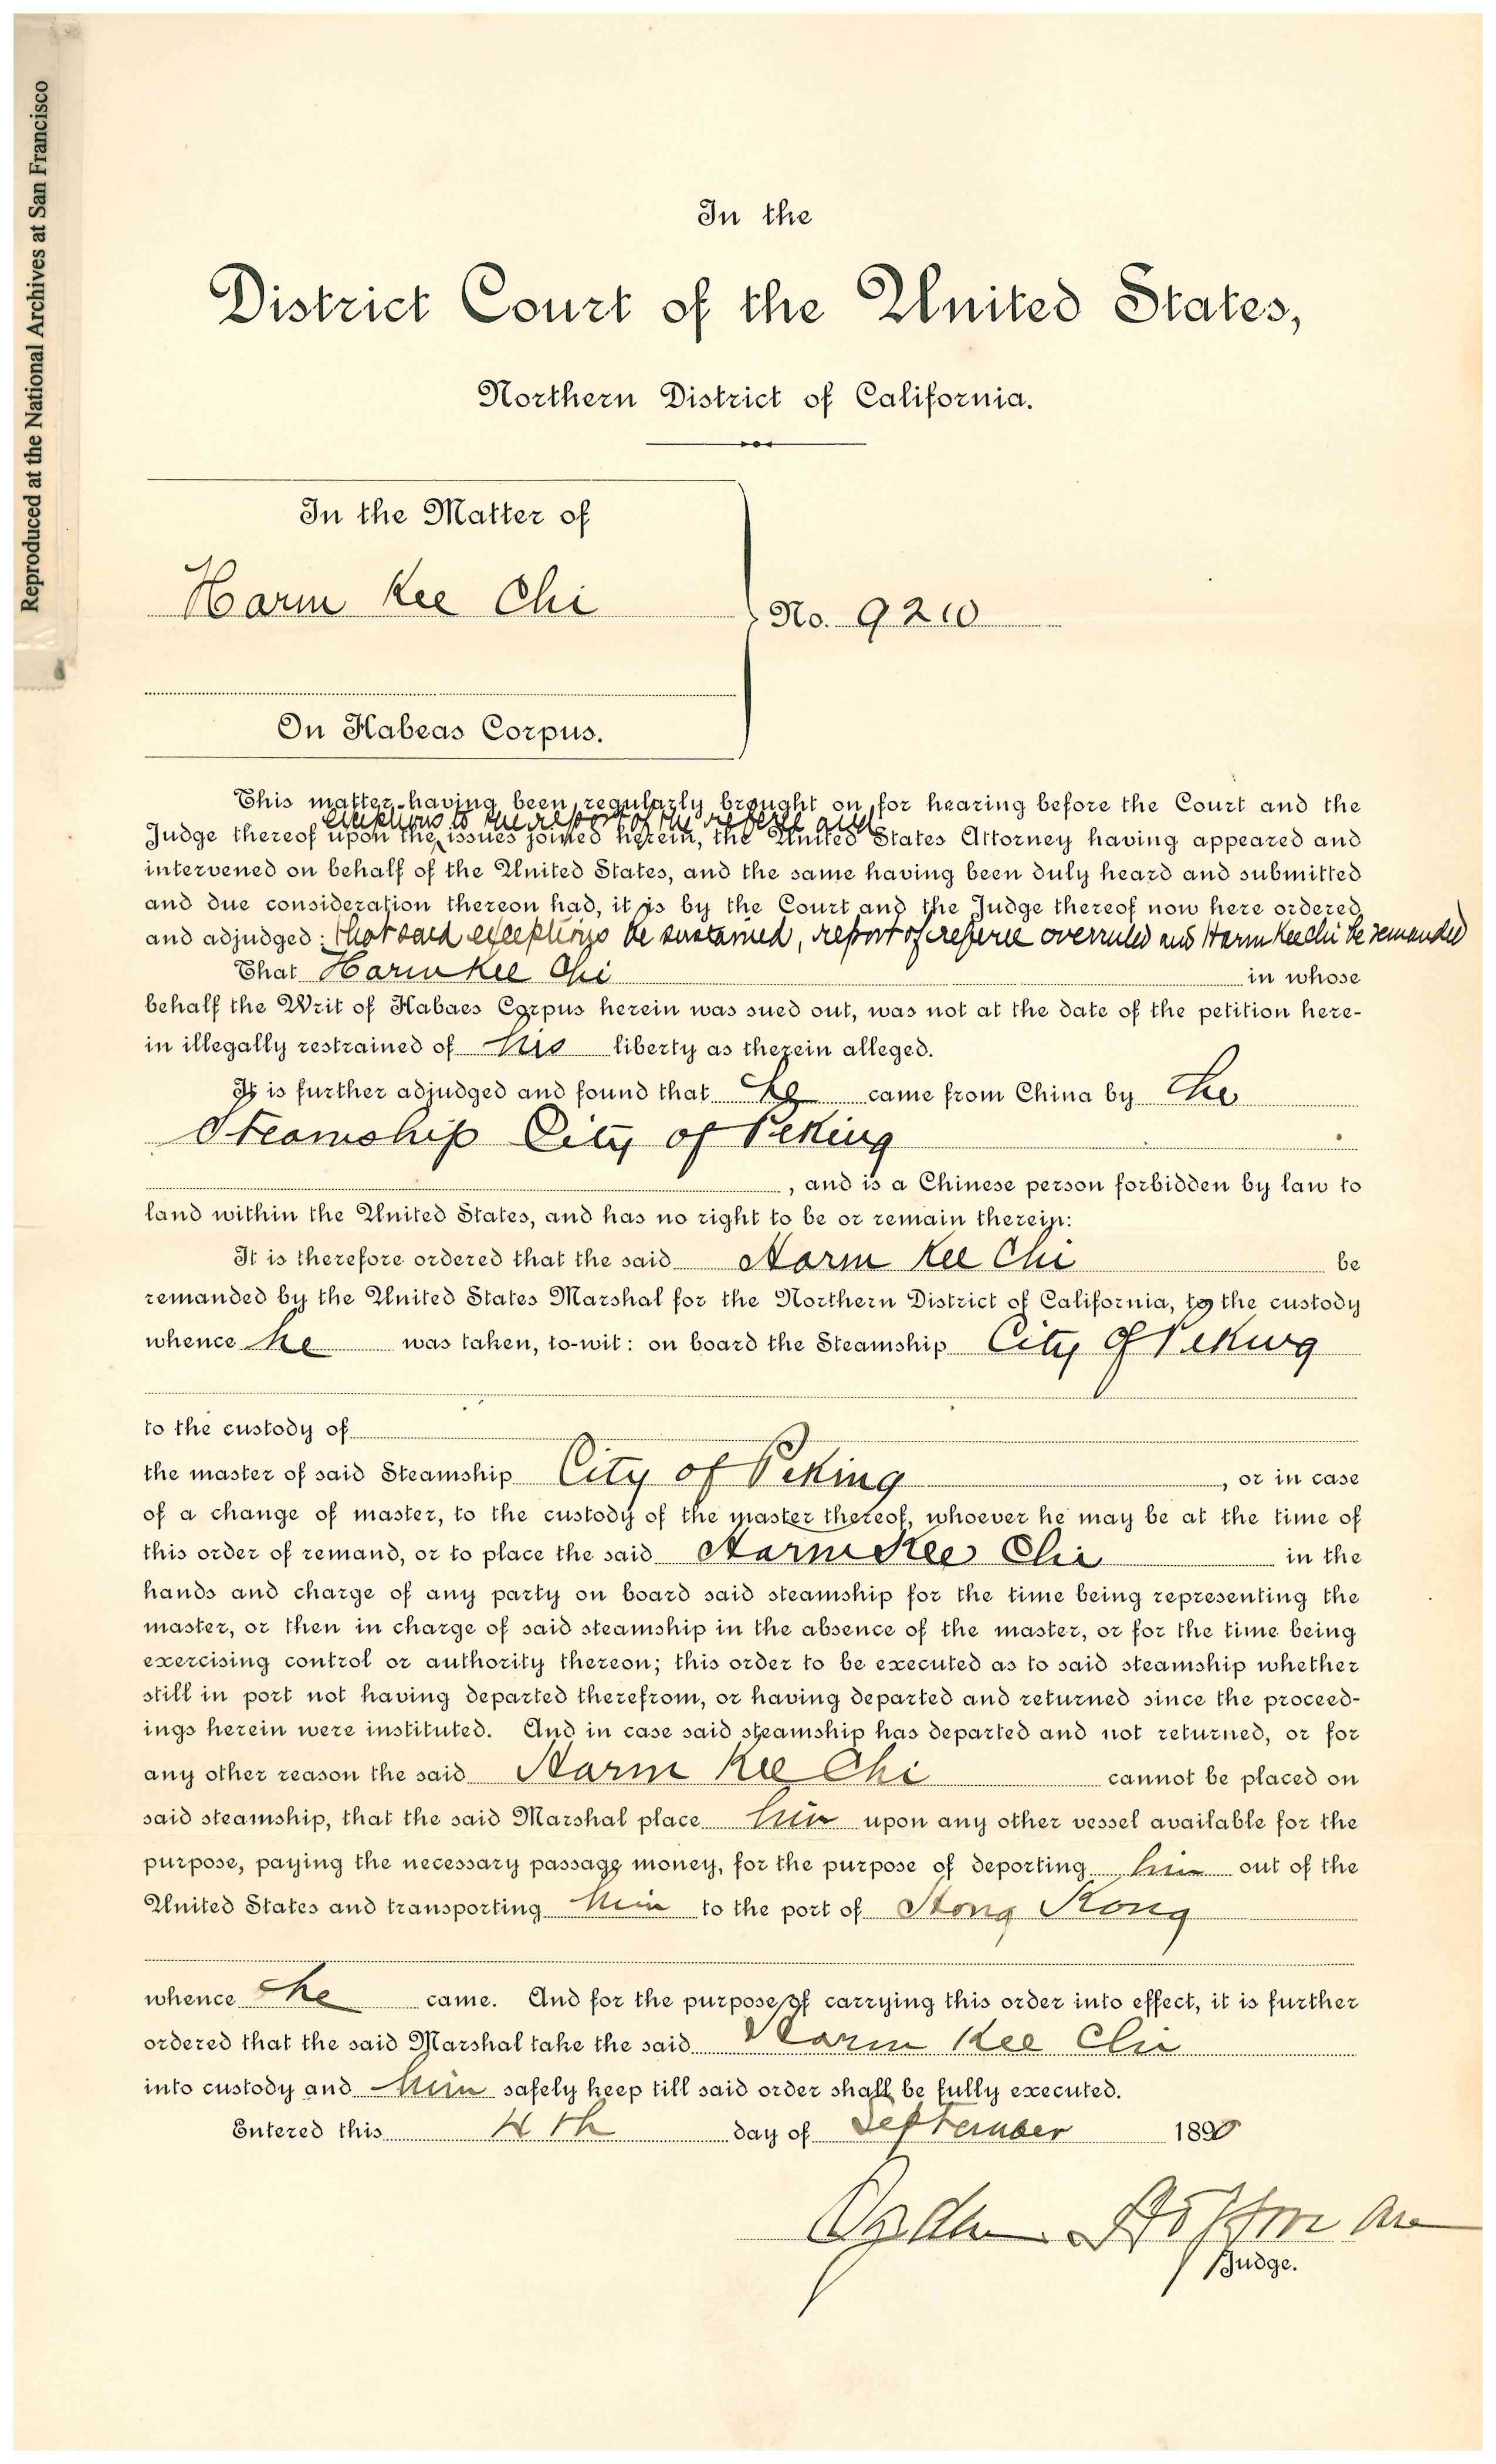 Reproduced at the National Archives at San Francisco
In the
District Court of the United States,
Northern District of California.
In the Matter of
Harm Kee Chi
No. 9210
On Habeas Corpus.
This matter having been regularly brought on for hearing before the Court and the
exceptions to the report of the referee and
Judge thereof upon the issues joined herein, the United States Attorney having appeared and
intervened on behalf of the United States, and the same having been duly heard and submitted
and due consideration thereon had, it is by the Court and the Judge thereof now here ordered
and adjudged: that said exceptions be sustained, report of referee overruled and Harm Kee Chi be remanded
That Harm Kee Chi in whose
behalf the Writ of Habaes Corpus herein was sued out, was not at the date of the petition here-
in illegally restrained of his liberty as therein alleged.
It is further adjudged and found that he came from China by the
Steamship City of Peking
, and is a Chinese person forbidden by law to
land within the United States, and has no right to be or remain therein:
It is therefore ordered that the said Harm Kee Chi be
remanded by the United States Marshal for the Northern District of California, to the custody
whence he was taken, to-wit: on board the Steamship City of Peking
to the custody of
the master of said Steamship City of Peking , or in case
of a change of master, to the custody of the master thereof, whoever he may be at the time of
this order of remand, or to place the said Harm Kee Chi in the
hands and charge of any party on board said steamship for the time being representing the
master, or then in charge of said steamship in the absence of the master, or for the time being
exercising control or authority thereon; this order to be executed as to said steamship whether
still in port not having departed therefrom, or having departed and returned since the proceed-
ings herein were instituted. And in case said steamship has departed and not returned, or for
any other reason the said Harm Kee Chi cannot be placed on
said steamship, that the said Marshal place him upon any other vessel available for the
purpose, paying the necessary passage money, for the purpose of deporting him out of the
United States and transporting him to the port of Hong Kong
whence he came. And for the purpose of carrying this order into effect, it is further
ordered that the said Marshal take the said Harm Kee Chi
into custody and him safely keep till said order shall be fully executed.
Entered this 4th day of September 1890
Ogden Hoffman
Judge.